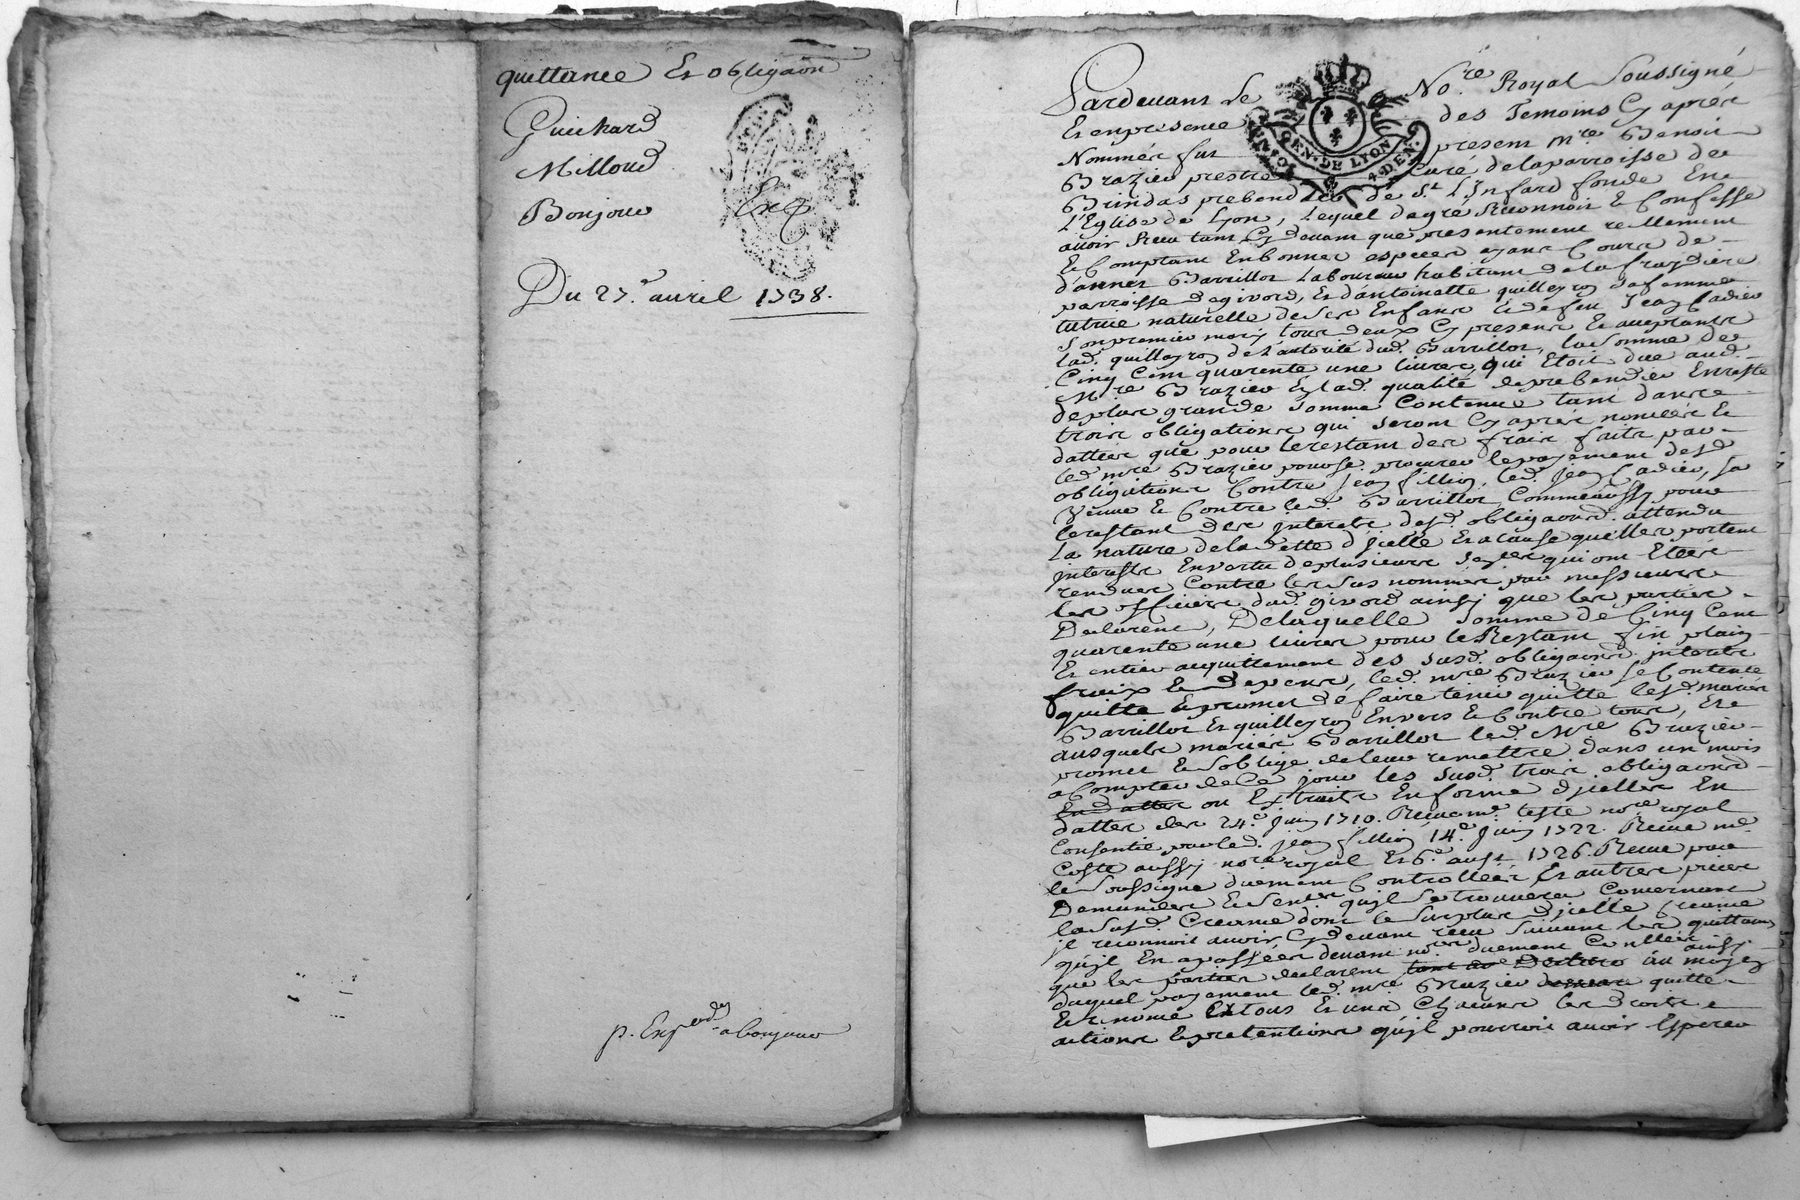 quittance Et obligaon
Guichard
Milloud
Bonjour
Exp
Du 27.e auril 1738.
p. Exp a bonjour
Pardeuant Le No.re Royal Soussigné
Et en presence des Temoins Cy aprés
Nommés fut present M.re Benoit
Brazier prestre Curé de la parroisse de
Brindas prebendier de S.t fondé En
L'Eglise de Lyon, Lequel de gré reconnoit & Confesse
auoir receu tant Cy deuant que presentement reellement
& Comptant En bonnes especes ayant Cours de
Barrillot Laboureur habitant de la
parroisse de giuord, Et d'antoinette quilleyron sa femme
tutrice naturelle de ses Enfans & de feu Jean Cadier
son premier mary tous deux Cy presents & acceptants
lad. quilleyron de l'autorité dud. Barrillot, la Somme de
Cinq Cent quarente une liures, qui Etoit due aud.
M.re Brazier En lad. qualité de prebendier En reste
de plus grande Somme Contenue tant dans
trois obligations qui seront Cy aprés nomées &
dattées que pour le restant des frais faits par
led. mre Brazier pour se procurer le payement desd.
obligations Contre Jean fillion, led. Jean Cadier, sa
Veuue & Contre led. Barrillot Comme aussy pour
le restant des jnterets desd. obligaons. attendu
La nature de la dette d'jcelle Et a cause qu'elles portent
jnterests En vertu de plusieurs qui ont Etées
rendues Contre les sus nommés par messieurs
les officiers dud. giuord ainsy que les parties
Declarent, De laquelle Somme de Cinq Cent
quarente une liures pour le Restant fin plain
Et entier acquittement des susd. obligaons. jnterets
fraix & depens, led. mre Brazier se Contente
quitte & promet de faire tenir quitte lesd. mariés
Barrillot Et quilleyron Enuers & Contre tous,
ausquels mariés Barrillot led. Mre Brazier
promet & s'oblige de leur remettre dans un mois
a Compter de Ce jour les susd. trois obligaons.
En dattes ou Extraits En forme d'jcelles En
dattes des 24.e Juin 1710. Receue me. teste nore royal
Consentie par led. Jean fillion, 14.e Juin 1722. Receue me.
Coste aussy nore royal Et 6.e aust 1726. Receue par
le Soussigné duement Controllées Et autres pieces
Demandées & qu'jl se trouuera Concernant
la susd. Creance dont le Surplus d'jcelle Creance
jl reconnoit auoir Cy deuant receu suiuant les quittances
qu'jl En a passées deuant nores duement Conllées ainsy
que les parties declarent au moyen
duquel payement led. mre Brazier quitte
& renonce a tous Et uns Chacuns les droits
actions & pretentions qu'jl pourroit auoir Esperer
GEN. DE LYON 4. DEN.